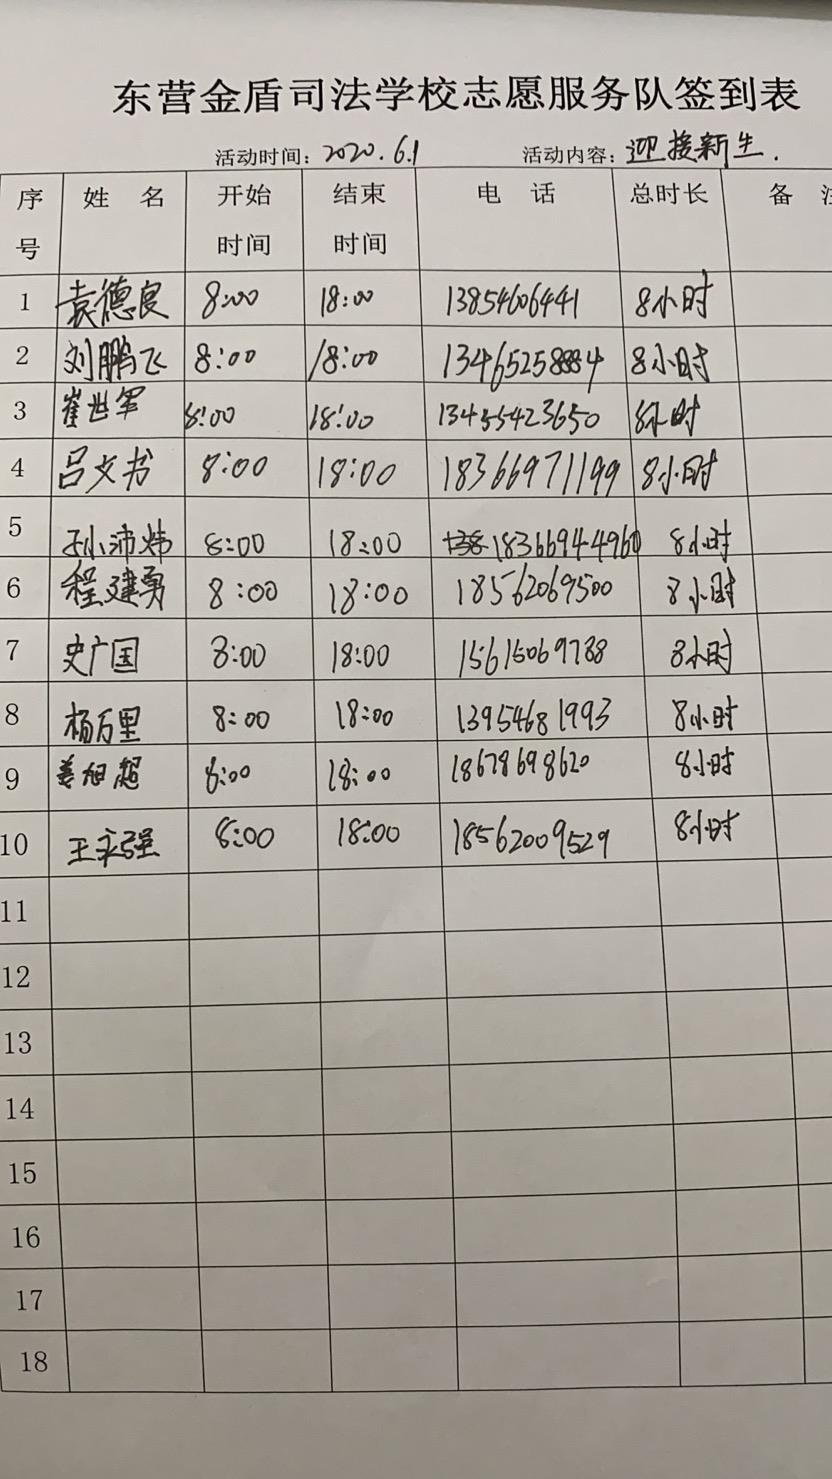 东营金盾司法学校志愿服务队签到表
活动时间：2020.6.1 活动内容：迎接新生.
序号 姓名 开始时间 结束时间 电话 总时长 备注
1 袁德良 8:00 18:00 13854606441 8小时
2 刘鹏飞 8:00 18:00 8小时
3 崔世军 8:00 18:00 13455423650 8小时
4 吕文书 8:00 18:00 18366971199 8小时
5 孙沛炜 8:00 18:00 18366944960 8小时
6 程建勇 8:00 18:00 18562069500 8小时
7 史广国 8:00 18:00 15615069788 8小时
8 杨万里 8:00 18:00 13954681993 8小时
9 姜旭超 8:00 18:00 18678698620 8小时
10 王永强 8:00 18:00 18562009529 8小时
11
12
13
14
15
16
17
18